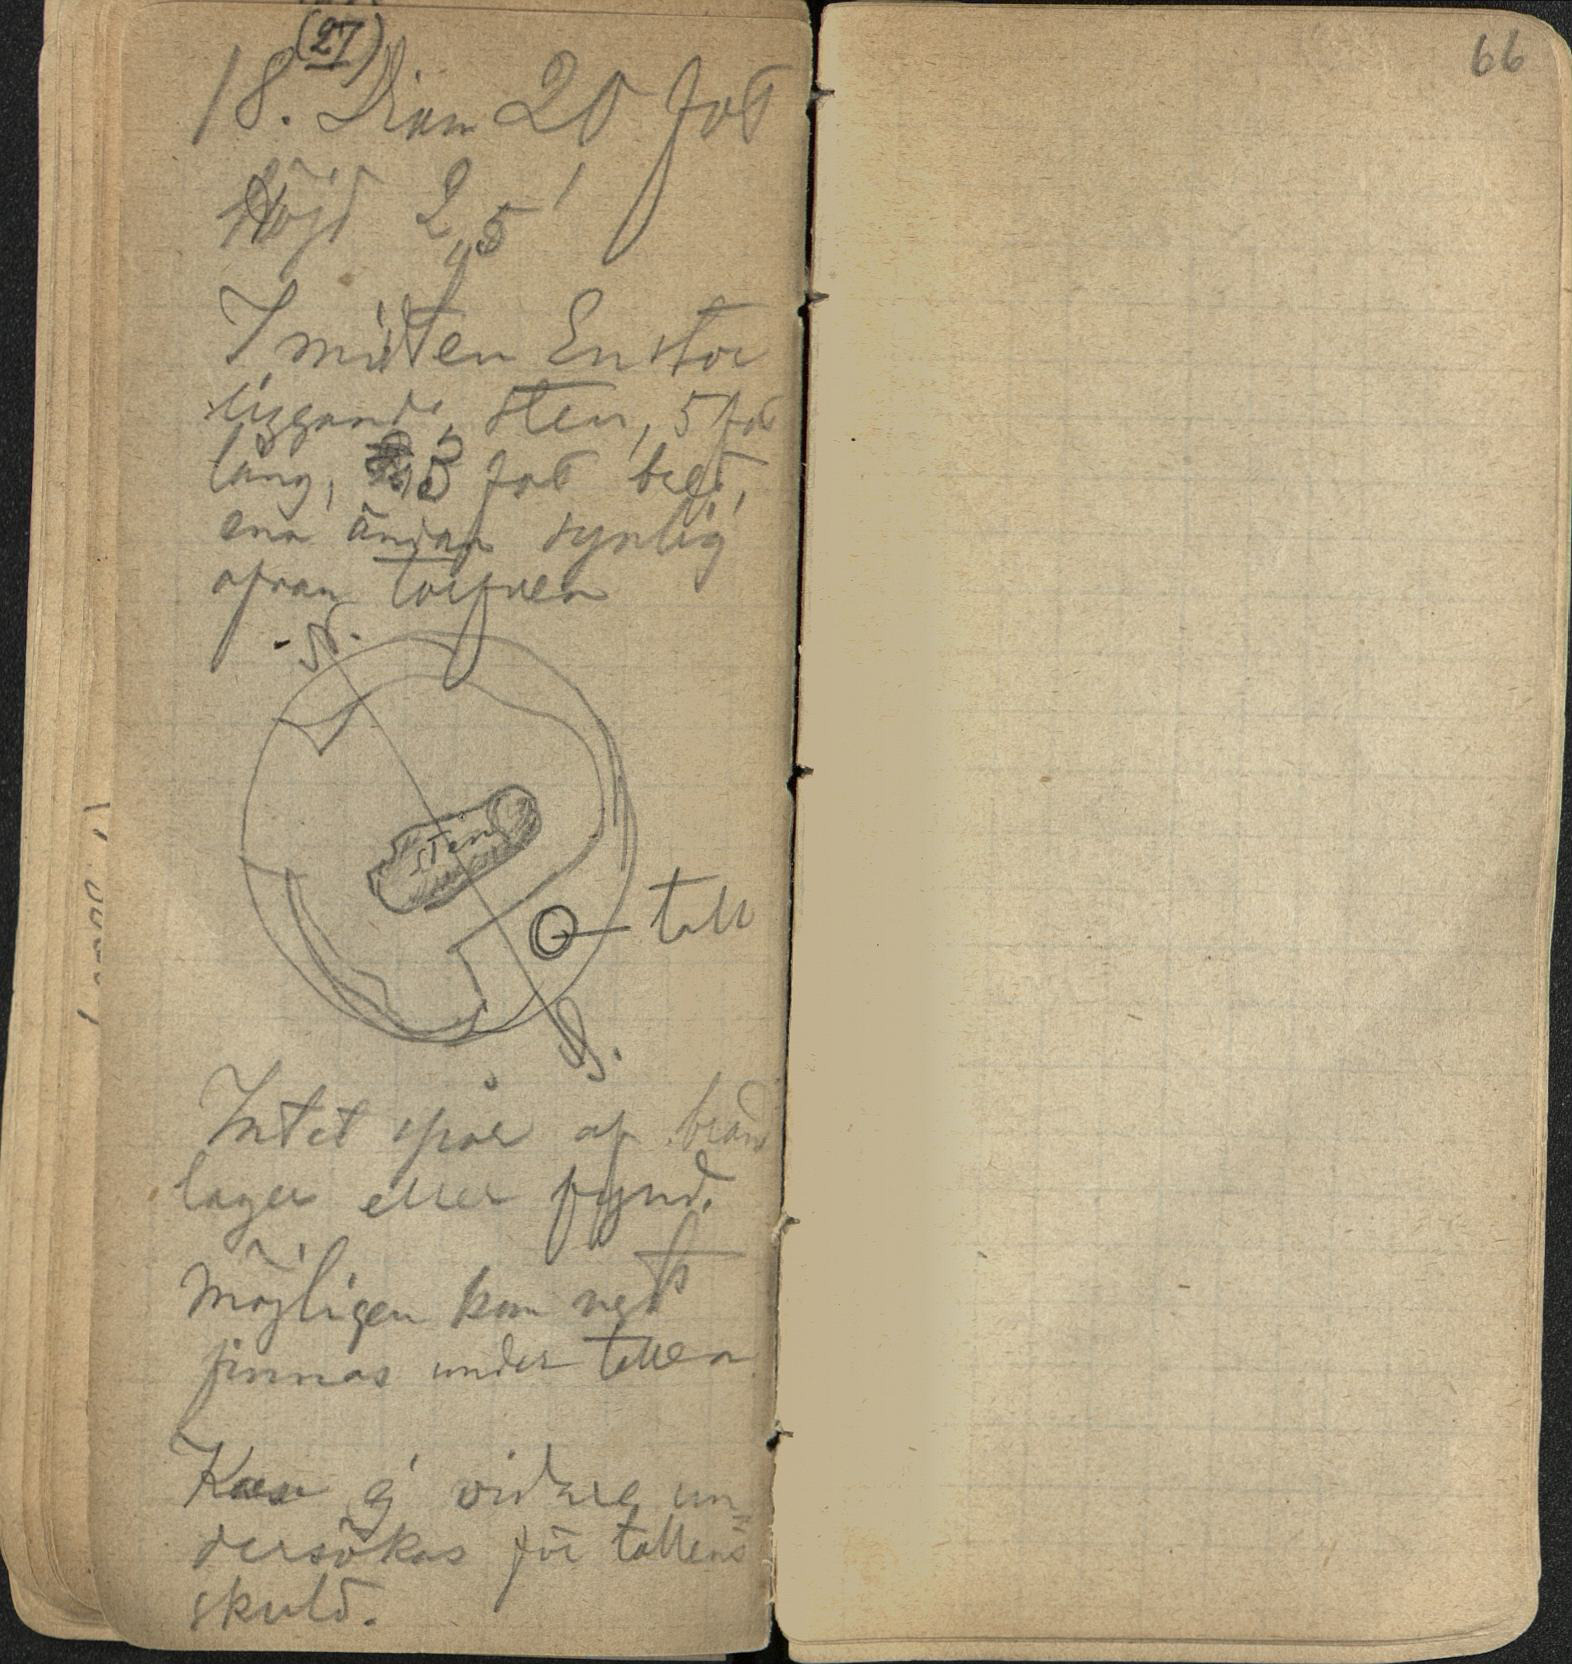 (27)
18. Diam 20 fot
Höjd 2,5'
I midten En stor
liggande sten, 5 fot
lång, 3 fot bred,
ena ändan synlig
ofvan torfven
N.
sten
tall
S.
Intet spår af brand
lager eller fynd.
Möjligen kan ngt
finnas under tallen
Kan ej vidare un=
dersökas för tallens
skuld.
66